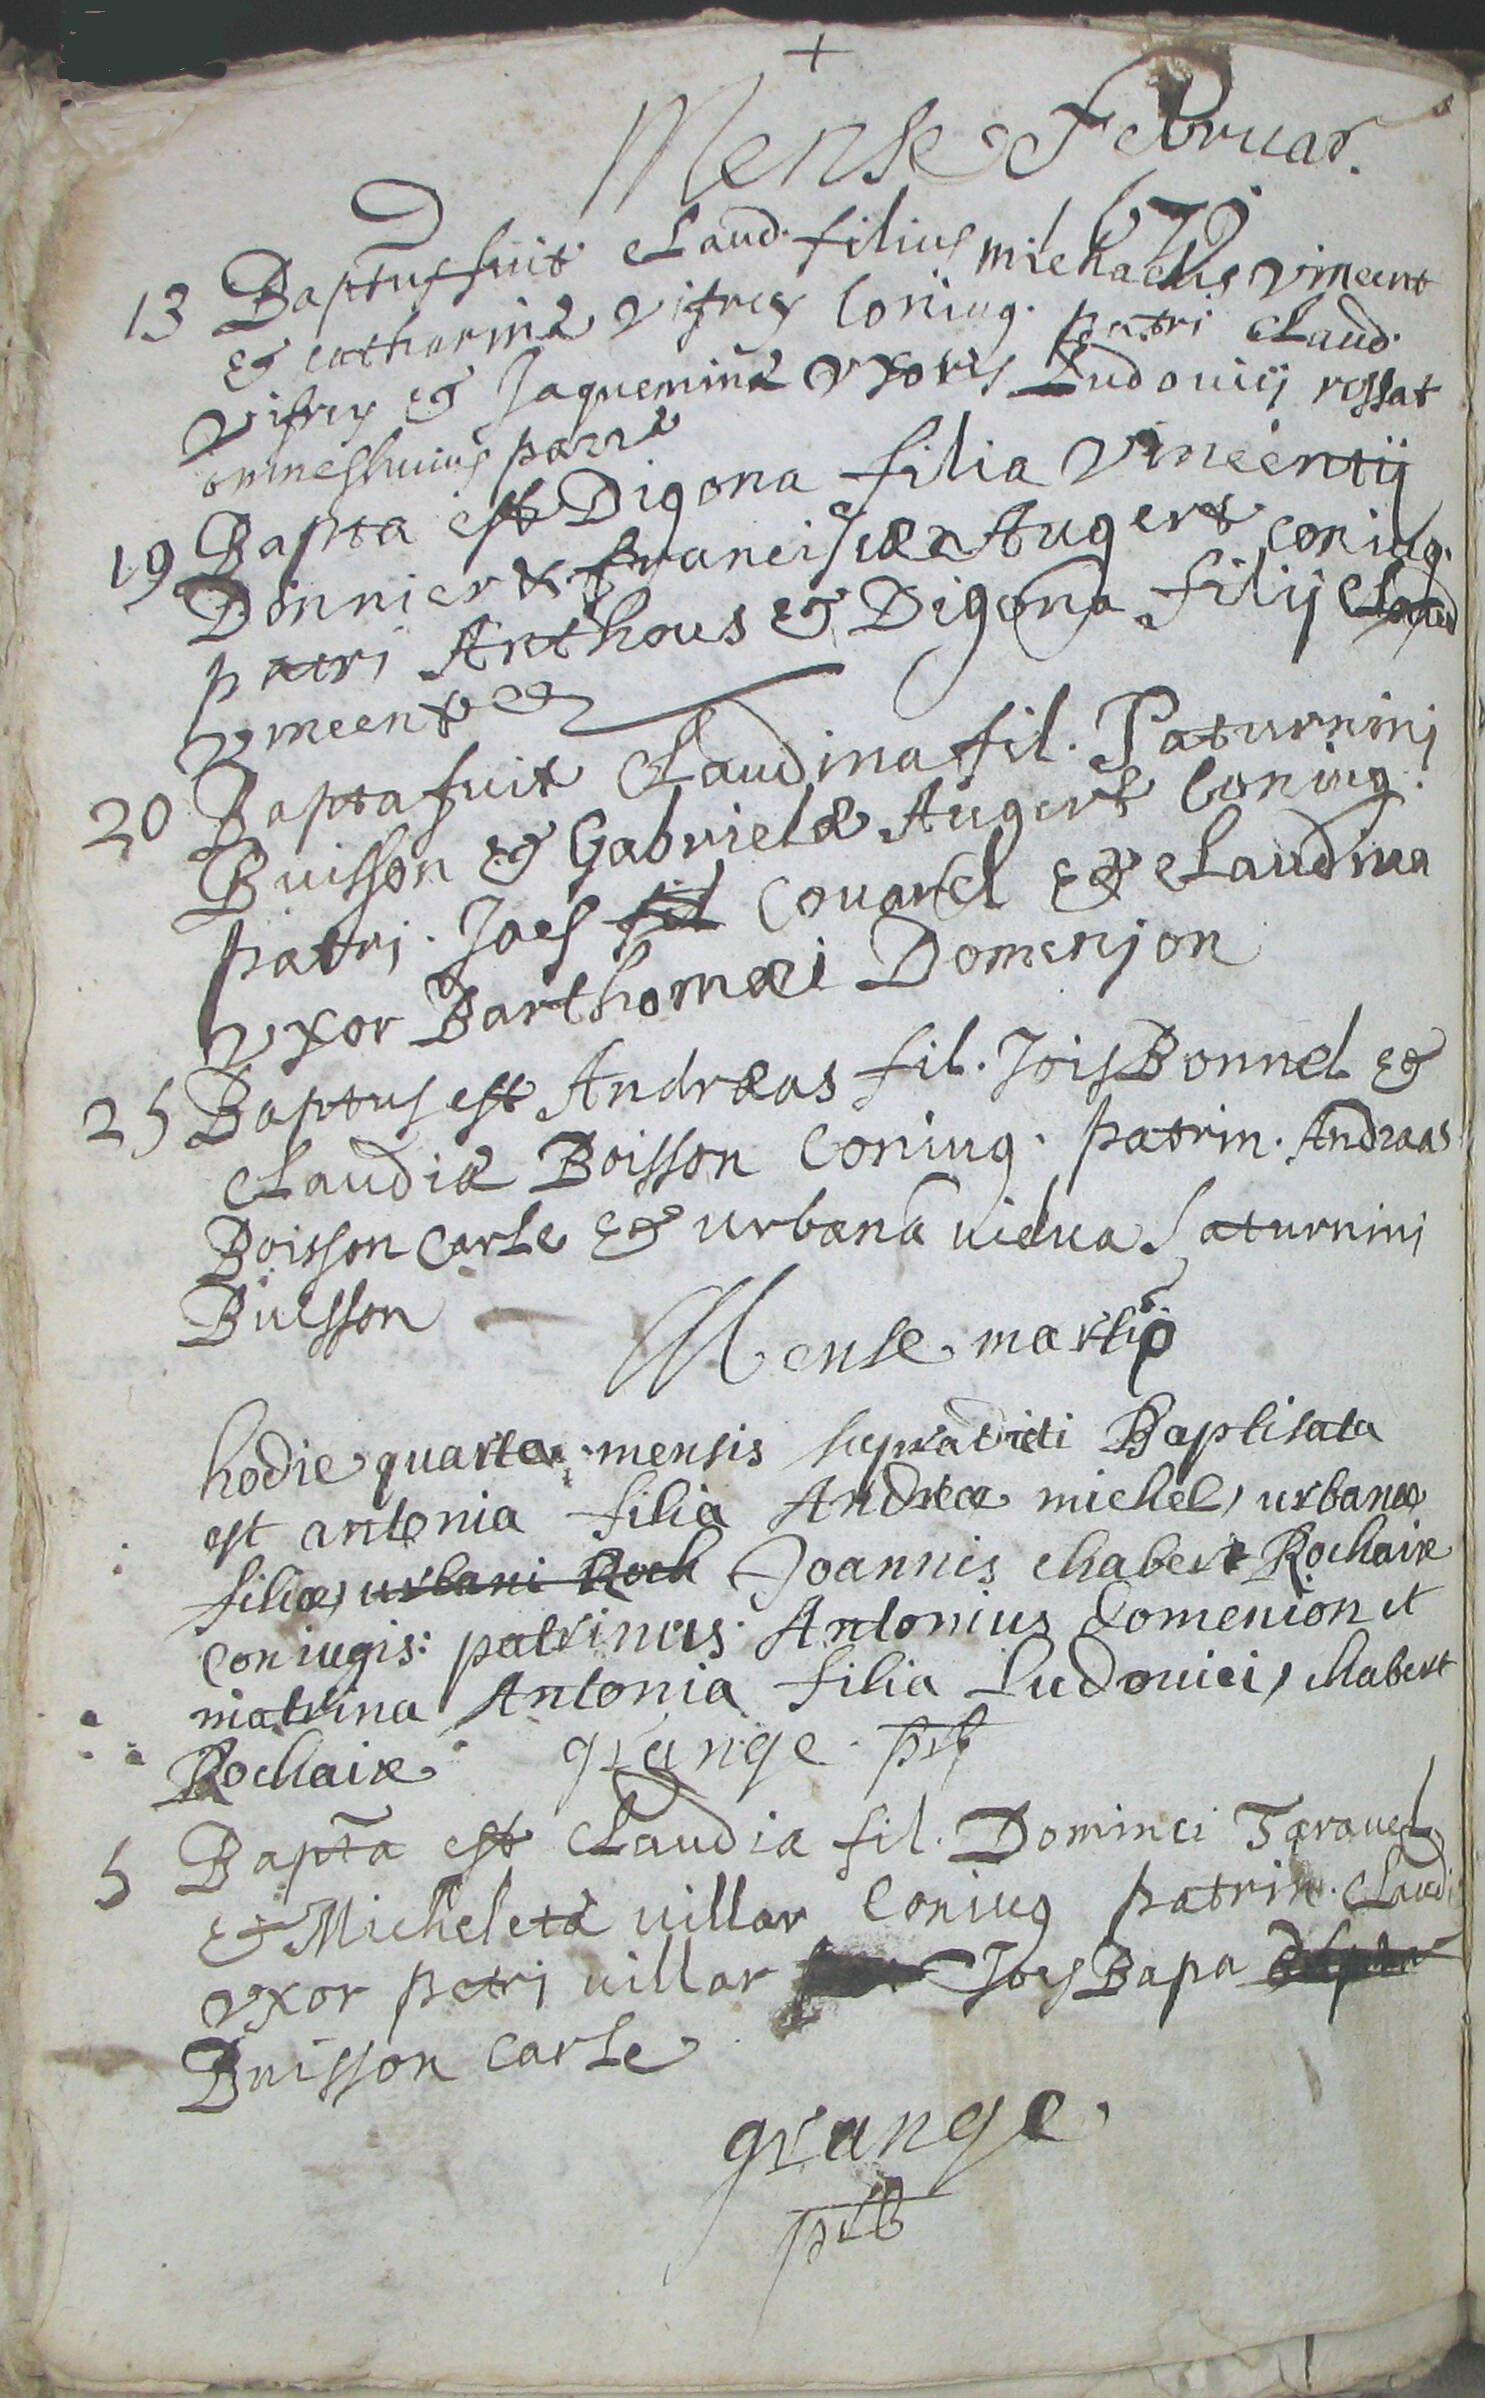 +
Mense Februar.
167
13 Baptus fuit Claud. filius michaelis vincent
& catharinæ vifrey Coniug. patri Claud.
vifrey & Jaqueminæ vxoris Ludouicj rossat
omnes huius parræ
19 Bapta est Digona filia vincentij
Donnier & franciscæ Augert coniug.
patri Anthous & Digona filij Claud
vincent
20 Bapta fuit Claudina fil. Saturninj
Buisson & Gabrielæ Augert Coniug.
patrj. Joes fil Couarel & Claudina
vxor Barthomæi Domenjon
25 Baptus est Andræas fil. Jois Bonnel &
Claudiæ Boisson Coniug. patrin. Andræas
Boisson Carle & urbana uidua Saturninj
Buisson
Mense martio
hodie quarta mensis supradicti Baptisata
est antonia filia Andreæ michel, urbanæ
filiæ, urbani Roch Joannis chabert Rochaix
coniugis: patrinus Antonius Domenion et
matrina Antonia filia Ludouici, chabert
Rochaix grange. ptr
5 Bapta est Claudia fil. Dominci Tarauel
& Micheletæ uillar Coniug patrin. Claudi
vxor petrj uillar Joes Bapa
Buisson Carle
grange.
ptr